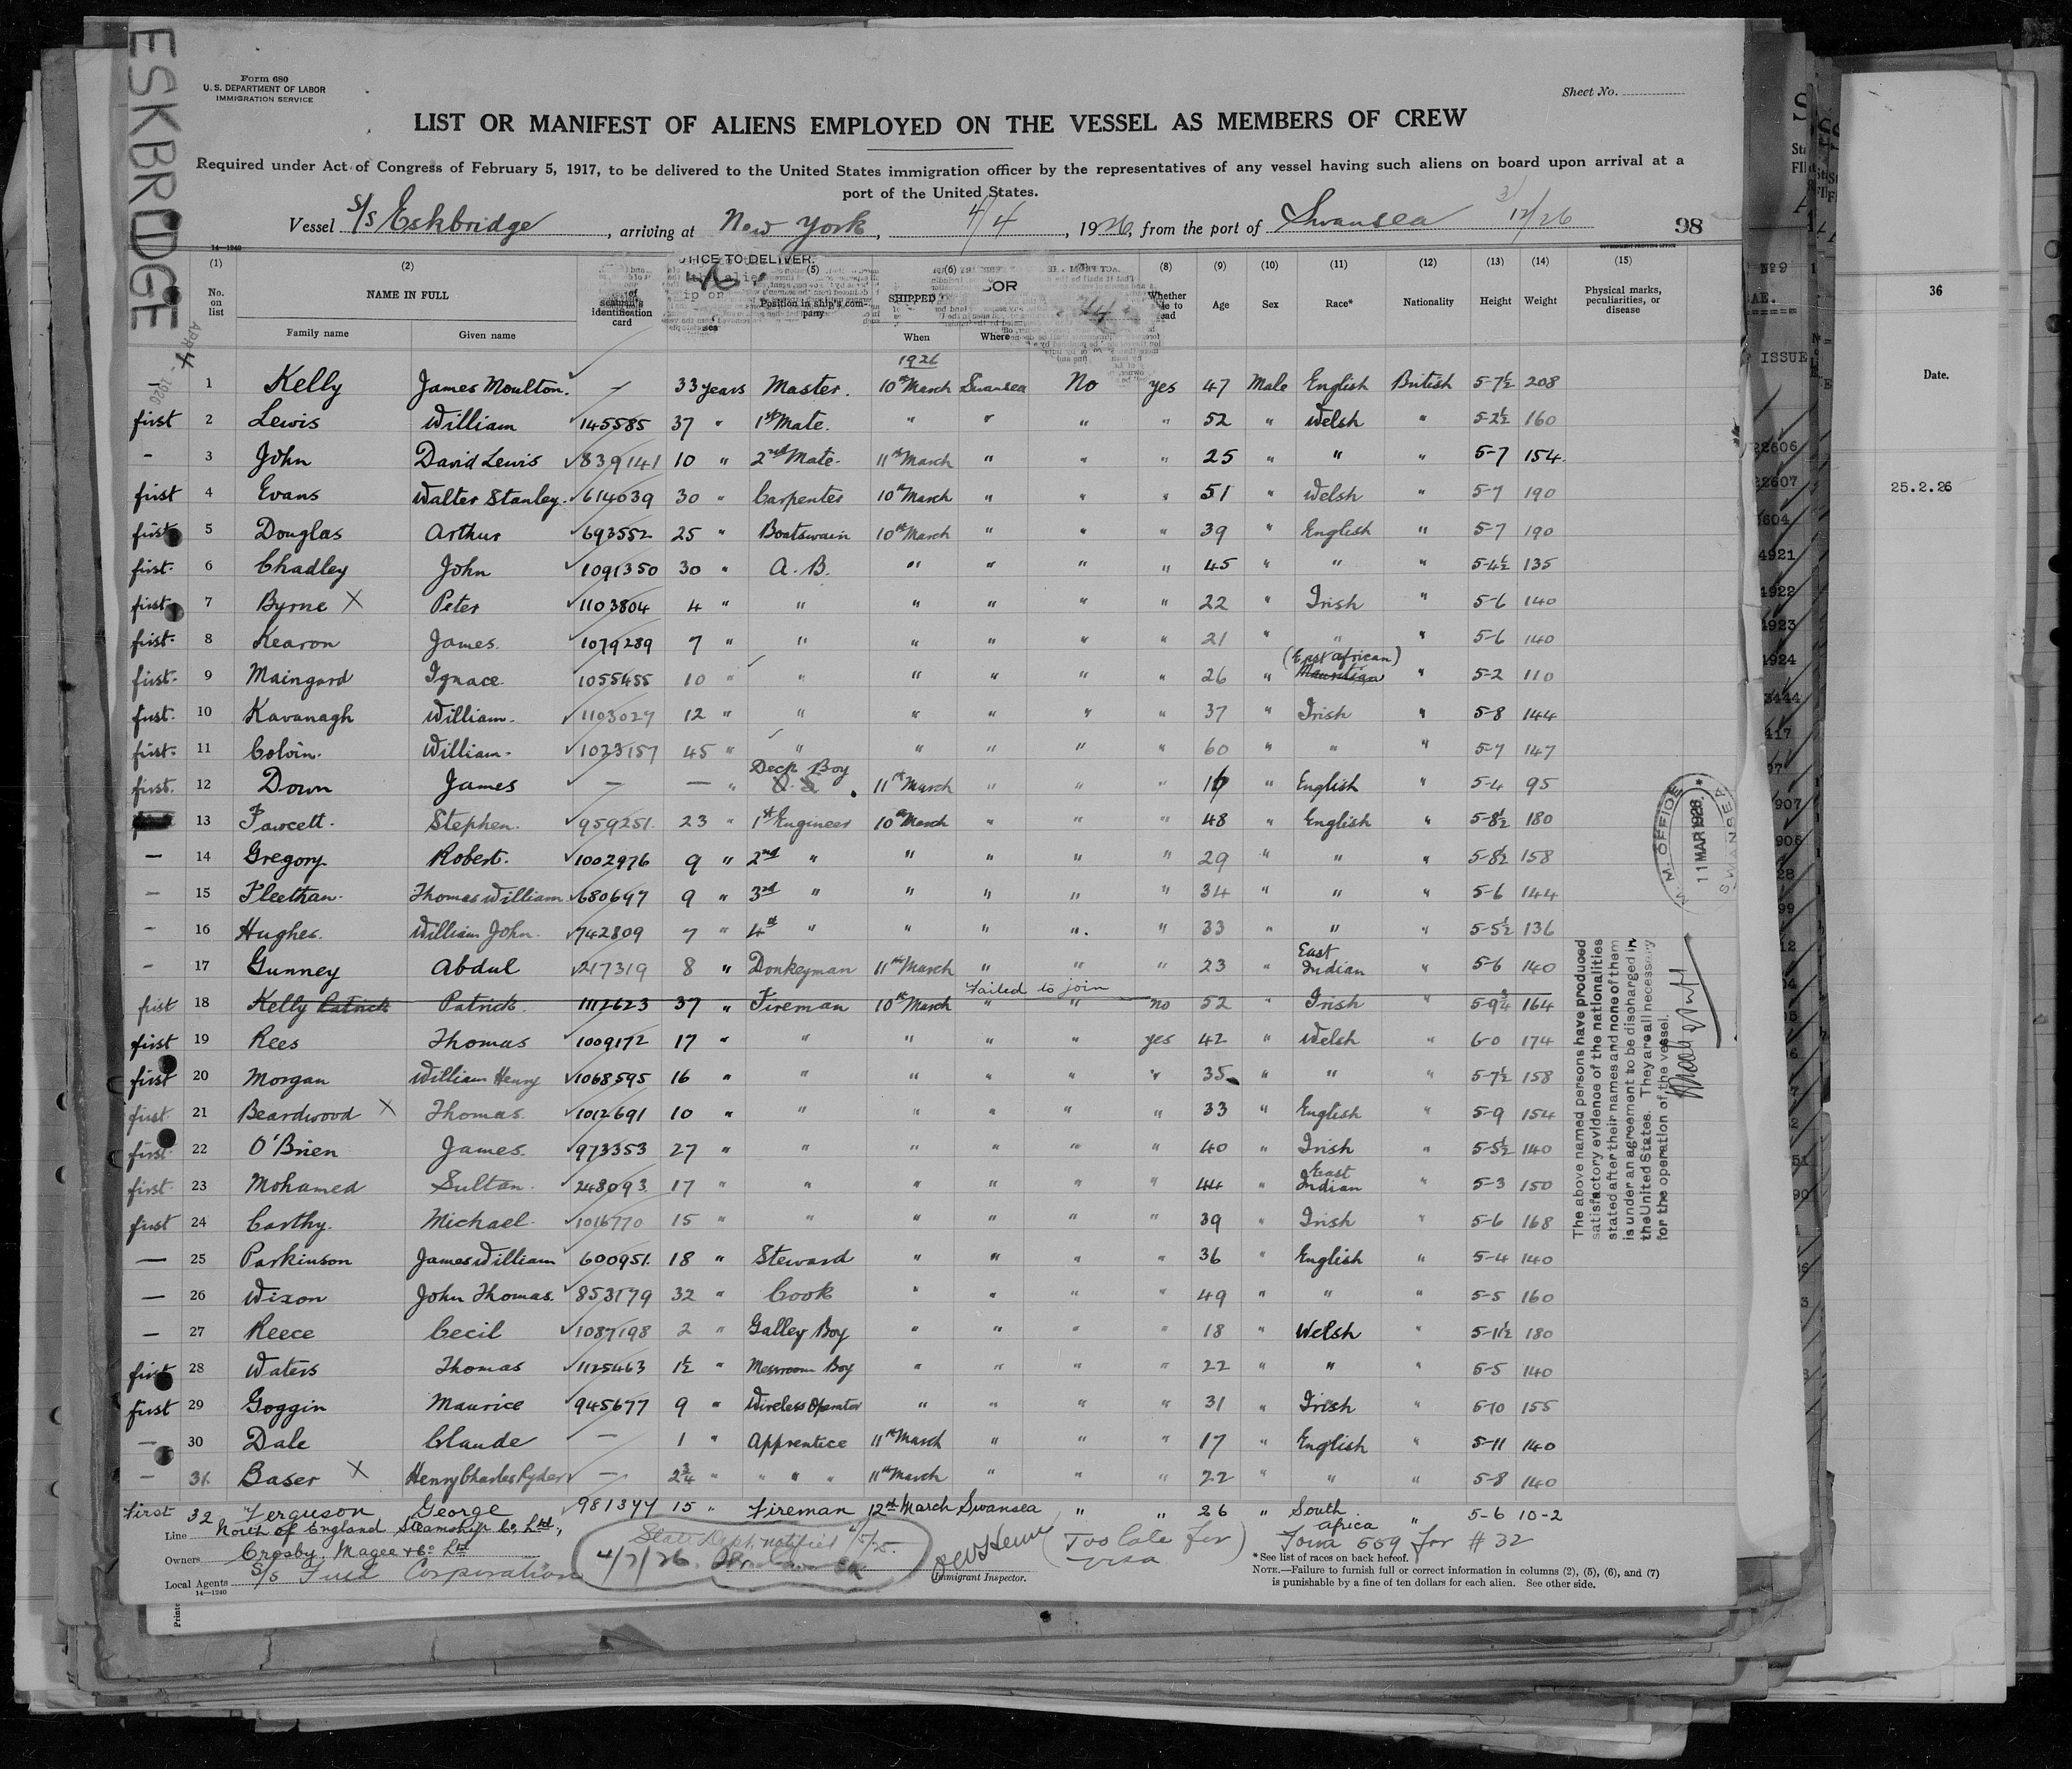 ESKBRIDGE
Form 680
U. S. DEPARTMENT OF LABOR
IMMIGRATION SERVICE
Sheet No.
LIST OR MANIFEST OF ALIENS EMPLOYED ON THE VESSEL AS MEMBERS OF CREW
Required under Act of Congress of February 5, 1917, to be delivered to the United States immigration officer by the representatives of any vessel having such aliens on board upon arrival at a
port of the United States.
Vessel S/S Eskbridge, arriving at New York, 4/4, 1926, from the port of Swansea 3/12/26 98
14—1240
(1) (2) (5) (6) (8) (9) (10) (11) (12) (13) (14) (15)
No. on list NAME IN FULL seaman's identification card Position in ship's company SHIPPED Whether Age Sex Race* Nationality Height Weight Physical marks, peculiarities, or disease
Family name Given name When Where
1926
1 Kelly James Moulton. — 33 years Master. 10th March Swansea No yes 47 Male English British 5-7½ 208
first 2 Lewis William 145585 37 " 1st Mate. " " " " 52 " Welsh " 5-2½ 160
- 3 John David Lewis 839141 10 " 2nd Mate. 11th March " " " 25 " " " 5-7 154
first 4 Evans Walter Stanley. 614039 30 " Carpenter 10th March " " " 51 " Welsh " 5-7 190
first 5 Douglas Arthur 693552 25 " Boatswain 10th March " " " 39 " English " 5-7 190
first. 6 Chadley John 1091350 30 " A. B. " " " " 45 " " " 5-4½ 135
first 7 Byrne X Peter 1103804 4 " " " " " " 22 " Irish " 5-6 140
first. 8 Kearon James. 1079289 7 " " " " " " 21 " " " 5-6 140
first. 9 Maingard Ignace. 1055455 10 " " " " " " 26 " (East African) Mauritian " 5-2 110
first. 10 Kavanagh William. 1103027 12 " " " " " " 37 " Irish " 5-8 144
first. 11 Colvin. William. 1023157 45 " " " " " " 60 " " " 5-7 147
first. 12 Down James — — " Deck Boy 11th March " " " 16 " English " 5-4 95
13 Fawcett. Stephen. 959251. 23 " 1st Engineer 10th March " " " 48 " English " 5-8½ 180
— 14 Gregory Robert. 1002976 9 " 2nd " " " " " 29 " " " 5-8½ 158
- 15 Fleethan. Thomas William 680697 9 " 3rd " " " " " 34 " " " 5-6 144
- 16 Hughes. William John. 742809 7 " 4th " " " " " 33 " " " 5-5½ 136
- 17 Gunney Abdul 217319 8 " Donkeyman 11th March " " " 23 " East Indian " 5-6 140
first 18 Kelly Patrick Patrick. 1112623 37 " Fireman 10th March " " Failed to join no 52 " Irish " 5-9¾ 164
first 19 Rees Thomas 1009172 17 " " " " " yes 42 " Welsh " 6-0 174
first 20 Morgan William Henry 1068595 16 " " " " " " 35 " " " 5-7½ 158
first 21 Beardwood X Thomas. 1012691 10 " " " " " " 33 " English " 5-9 154
first 22 O'Brien James. 973353 27 " " " " " " 40 " Irish " 5-5½ 140
first. 23 Mohamed Sultan. 248093. 17 " " " " " " 44 " East Indian " 5-3 150
first 24 Carthy. Michael. 1016770 15 " " " " " " 39 " Irish " 5-6 168
— 25 Parkinson James William 600951. 18 " Steward " " " " 36 " English " 5-4 140
— 26 Wixon John Thomas. 853179 32 " Cook " " " " 49 " " " 5-5 160
— 27 Reece Cecil 1087198 2 " Galley Boy " " " " 18 " Welsh " 5-11½ 180
first 28 Waters Thomas 1125463 1½ " Messroom Boy " " " " 22 " " " 5-5 140
first 29 Goggin Maurice 945677 9 " Wireless Operator " " " " 31 " Irish " 5-10 155
— 30 Dale Claude — 1 " Apprentice 11th March " " " 17 " English " 5-11 140
- 31. Baser X Henry Charles Ryder — 2¾ " " " " 11th March " " " 22 " " " 5-8 140
First 32 Ferguson George 981344 15 " Fireman 12th March Swansea " " 26 " South Africa " 5-6 10-2
Line North of England Steamship Co. Ltd.,
Owners Crosby, Magee & Co. Ltd.
Local Agents S/S Fuel Corporation
14—1240
State Dept. notified
4/7/26
Immigrant Inspector.
(Too late for visa)
Iowa 559 for # 32
* See list of races on back hereof.
NOTE.—Failure to furnish full or correct information in columns (2), (5), (6), and (7)
is punishable by a fine of ten dollars for each alien. See other side.
M. M. OFFICE
11 MAR 1926
SWANSEA
The above named persons have produced
satisfactory evidence of the nationalities
stated after their names and none of them
is under an agreement to be discharged in
the United States. They are all necessary
for the operation of the vessel.
Nº 9
ISSUE
36
Date.
25.2.26